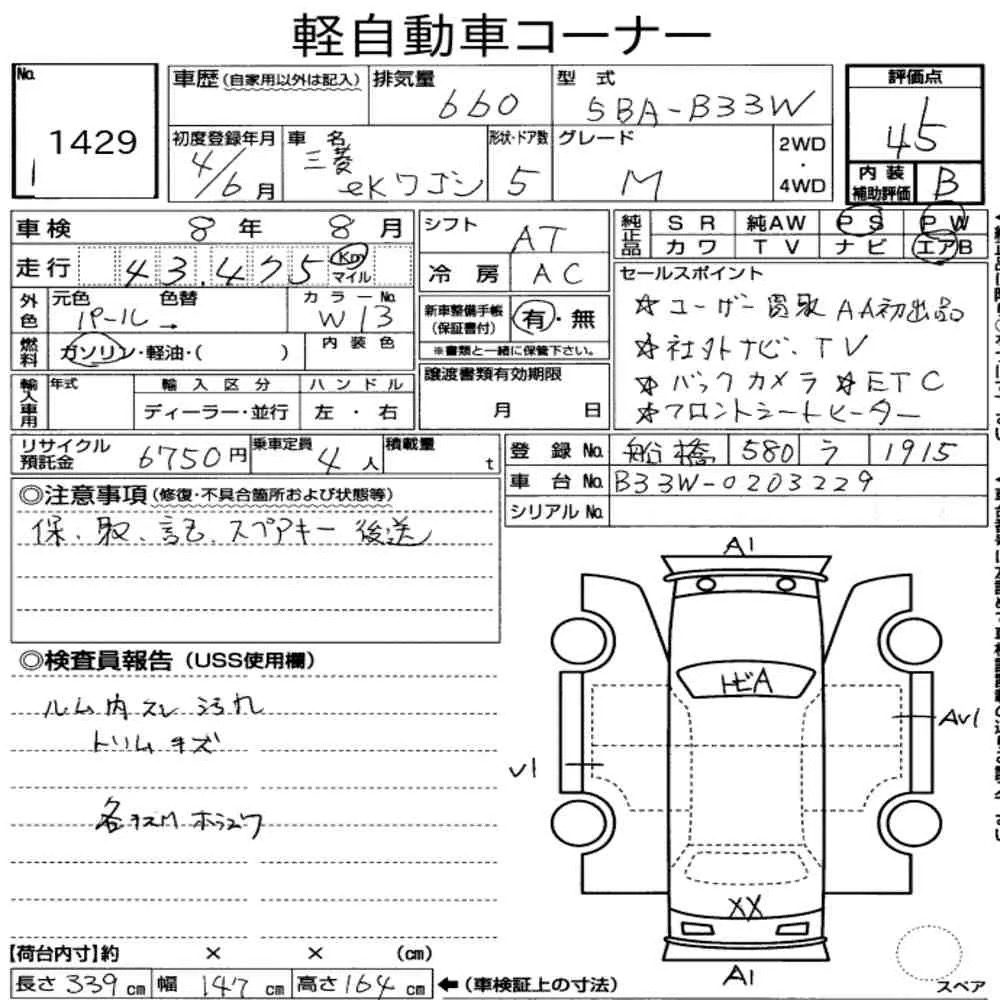 軽自動車コーナー
No. 1429
車歴 (自家用以外は記入) 排気量 660 型式 5BA-B33W 評価点 4.5
初度登録年月 4/6月 車名 三菱 eKワゴン 形状・ドア数 5 グレード M 2WD・4WD
内装補助評価 B
車検 8年 8月
シフト AT
純正品 SR 純AW PS PW
カワ TV ナビ エアB
走行 43,475 Km マイル
冷房 AC
セールスポイント
☆ユーザー買取 AA初出品
☆社外ナビ、TV
☆バックカメラ ☆ETC
☆フロントシートヒーター
外色 元色 パール→ 色替 カラーNo. W13
新車整備手帳(保証書付) 有・無
※書類と一緒に保管下さい。
燃料 ガソリン・軽油・( ) 内装色
輸入車用 年式 輸入区分 ハンドル
ディーラー・並行 左・右
譲渡書類有効期限
月 日
リサイクル預託金 6750円 乗車定員 4人 積載量 t
登録No. 船橋 580 ラ 1915
車台No. B33W-0203229
シリアルNo.
◎注意事項(修復・不具合箇所および状態等)
保、取、記、スペアキー 後送
◎検査員報告(USS使用欄)
ルム内 スレ 汚れ
トリム キズ
A1
トビA
AV1
V1
XX
A1
【荷台内寸】約 × × (cm)
長さ 339 cm 幅 147 cm 高さ 164 cm ←(車検証上の寸法)
スペア